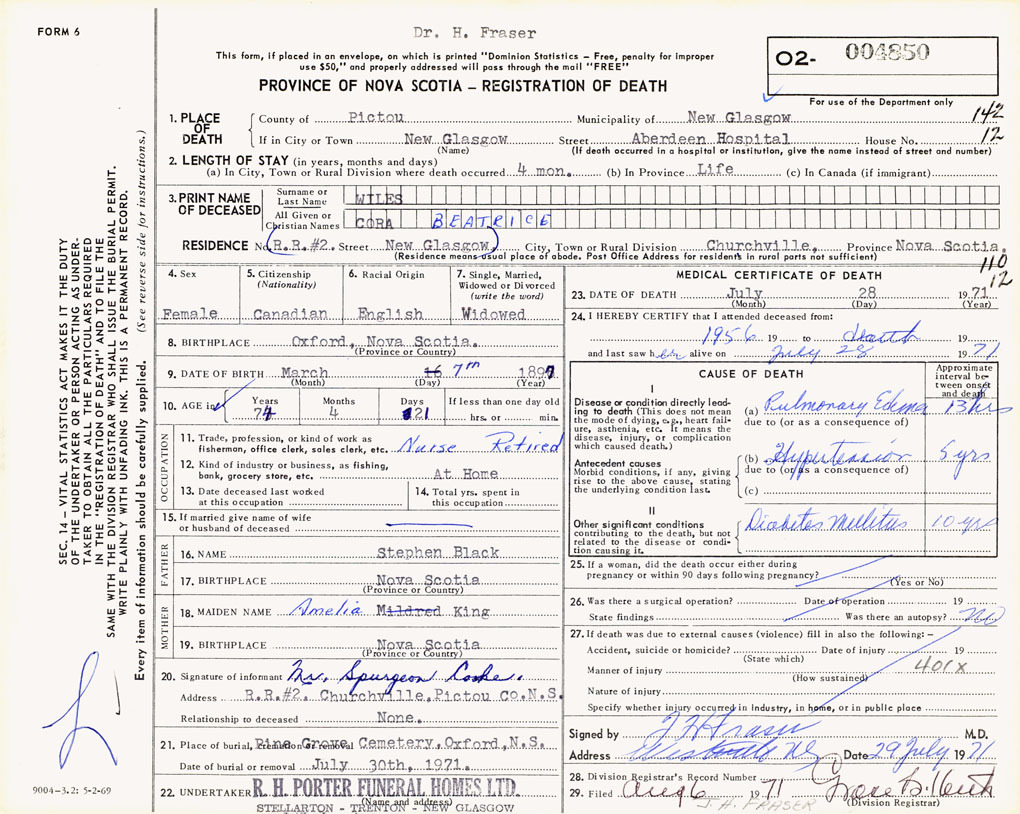 FORM 6
Dr. H. Fraser
This form, if placed in an envelope, on which is printed "Dominion Statistics – Free, penalty for improper
use $50," and properly addressed will pass through the mail "FREE"
PROVINCE OF NOVA SCOTIA – REGISTRATION OF DEATH
02- 004850
For use of the Department only
142
12
1. PLACE OF DEATH
County of Pictou Municipality of New Glasgow
If in City or Town New Glasgow Street Aberdeen Hospital House No.
(Name) (If death occurred in a hospital or institution, give the name instead of street and number)
2. LENGTH OF STAY (in years, months and days)
(a) In City, Town or Rural Division where death occurred 4 mon. (b) In Province Life (c) In Canada (if immigrant)
3. PRINT NAME OF DECEASED
Surname or Last Name WILES
All Given or Christian Names CORA BEATRICE
RESIDENCE No. R.R.#2. Street New Glasgow, City, Town or Rural Division Churchville, Province Nova Scotia.
(Residence means usual place of abode. Post Office Address for residents in rural parts not sufficient)
110
12
4. Sex
Female
5. Citizenship
(Nationality)
Canadian
6. Racial Origin
English
7. Single, Married,
Widowed or Divorced
(write the word)
Widowed
8. BIRTHPLACE Oxford, Nova Scotia.
(Province or Country)
9. DATE OF BIRTH March 16 7th 1897
(Month) (Day) (Year)
10. AGE in
Years Months Days If less than one day old
74 4 21 hrs. or min.
OCCUPATION
11. Trade, profession, or kind of work as
fisherman, office clerk, sales clerk, etc. Nurse Retired
12. Kind of industry or business, as fishing,
bank, grocery store, etc. At Home
13. Date deceased last worked
at this occupation
14. Total yrs. spent in
this occupation
15. If married give name of wife
or husband of deceased
FATHER
16. NAME Stephen Black
17. BIRTHPLACE Nova Scotia
(Province or Country)
MOTHER
18. MAIDEN NAME Amelia Mildred King
19. BIRTHPLACE Nova Scotia
(Province or Country)
20. Signature of informant Mr. Spurgeon Cooke.
Address R.R.#2. Churchville, Pictou Co.N.S.
Relationship to deceased None.
21. Place of burial, cremation or removal Pine Grove Cemetery, Oxford, N.S.
Date of burial or removal July 30th, 1971.
22. UNDERTAKER R. H. PORTER FUNERAL HOMES LTD.
(Name and address)
STELLARTON - TRENTON - NEW GLASGOW
MEDICAL CERTIFICATE OF DEATH
23. DATE OF DEATH July 28 1971
(Month) (Day) (Year)
24. I HEREBY CERTIFY that I attended deceased from:
1956 19 to death
and last saw her alive on July 28 1971
CAUSE OF DEATH
Approximate
interval be-
tween onset
and death
I
Disease or condition directly lead-
ing to death (This does not mean
the mode of dying, e.g., heart fail-
ure, asthenia, etc. It means the
disease, injury, or complication
which caused death.)
(a) Pulmonary Edema 13 hrs
due to (or as a consequence of)
Antecedent causes
Morbid conditions, if any, giving
rise to the above cause, stating
the underlying condition last.
(b) Hypertension 5 yrs
due to (or as a consequence of)
(c)
II
Other significant conditions
contributing to the death, but not
related to the disease or condi-
tion causing it.
Diabetes Mellitus 10 yrs
25. If a woman, did the death occur either during
pregnancy or within 90 days following pregnancy?
(Yes or No)
26. Was there a surgical operation? Date of operation 19
State findings Was there an autopsy? No
27. If death was due to external causes (violence) fill in also the following: –
Accident, suicide or homicide? Date of injury 19
(State which)
401X
Manner of injury
(How sustained)
Nature of injury
Specify whether injury occurred in industry, in home, or in public place
Signed by J H Fraser M.D.
Address Westville NS Date 29 July 1971
28. Division Registrar's Record Number
29. Filed Aug 6 1971
J. H. FRASER
(Division Registrar)
SEC. 14 – VITAL STATISTICS ACT MAKES IT THE DUTY
OF THE UNDERTAKER OR PERSON ACTING AS UNDER-
TAKER TO OBTAIN ALL THE PARTICULARS REQUIRED
IN THE "REGISTRATION OF DEATH" AND TO FILE THE
SAME WITH THE DIVISION REGISTRAR WHO SHALL ISSUE THE BURIAL PERMIT.
WRITE PLAINLY WITH UNFADING INK. THIS IS A PERMANENT RECORD.
Every item of information should be carefully supplied. (See reverse side for instructions.)
9004-3.2: 5-2-69